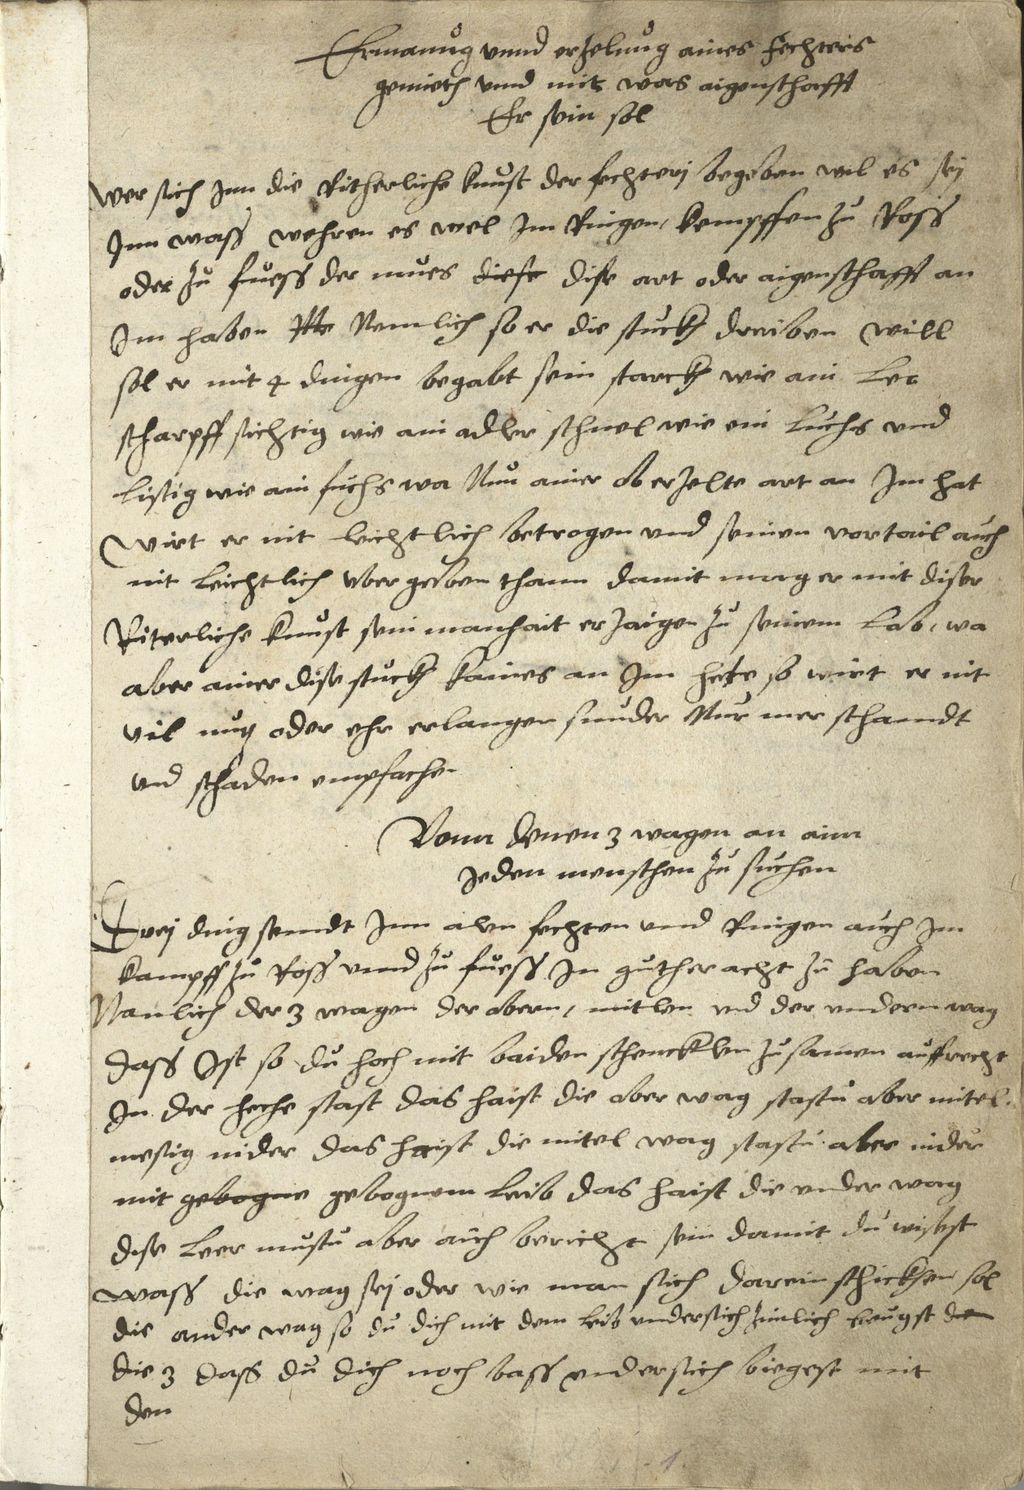 Ermanug vnnd erzelnug aines fechters
gemieth vnnd mit was aigenschafft
Er sein sol
Wer sich Inn die Ritherliche kunst der fechterej begeben wil es sej
Inn wass wehren es wel Im Ringen, kempffen zů Ross
oder zů fuess der mues diese dise art oder aigenschafft an
Im haben Nemlich so er die stuckh dreiben will
sol er mit 4 dingen begabt sein starckh wie ain Leo
scharpff sichtig wie ain adler schnel wie ein Luchs und
Listig wie ain fuchs wa Nun ainer ob erzelte art an Im hat
Wirt er nit leichtlich betrogen und seinen vortail auch
nit leichtlich vber geben thann damit mag er mit diser
Riterliche kunst sein manhait erzaigen zů seinem Lob, wa
aber ainer dise stuckh kaines an Im hete so wirt er nit
vil nutz oder ehr erlangen sunder Nur mer schandt
und schaden empfachen
Vonn denen 3 wagen an aim
Jeden menschen zů suchen
Drej ding sendt Inn alen fechten und Ringen auch Im
kampff zů Ross vnnd zů fuess In guther acht zů haben
Namlich der 3 wagen der obern, mitlen und der undern wag
dass Ist so du hoch mit baiden schenckhlen zusamen auffrecht
In der heche stast das haist die ober wag stastu aber mitel
mesig nider das haist die mitel wag stastu aber nider
mit gebogne gebognem leib das haist die under wag
dise Leer mustu aber auch bericht sein damit du wisest
wass die wag sej oder wie man sich darein schickhen sol
die ander wag so du dich mit dem leib undersich zimlich beugst die
die 3 dass du dich noch bass undersich biegest mit
den
1